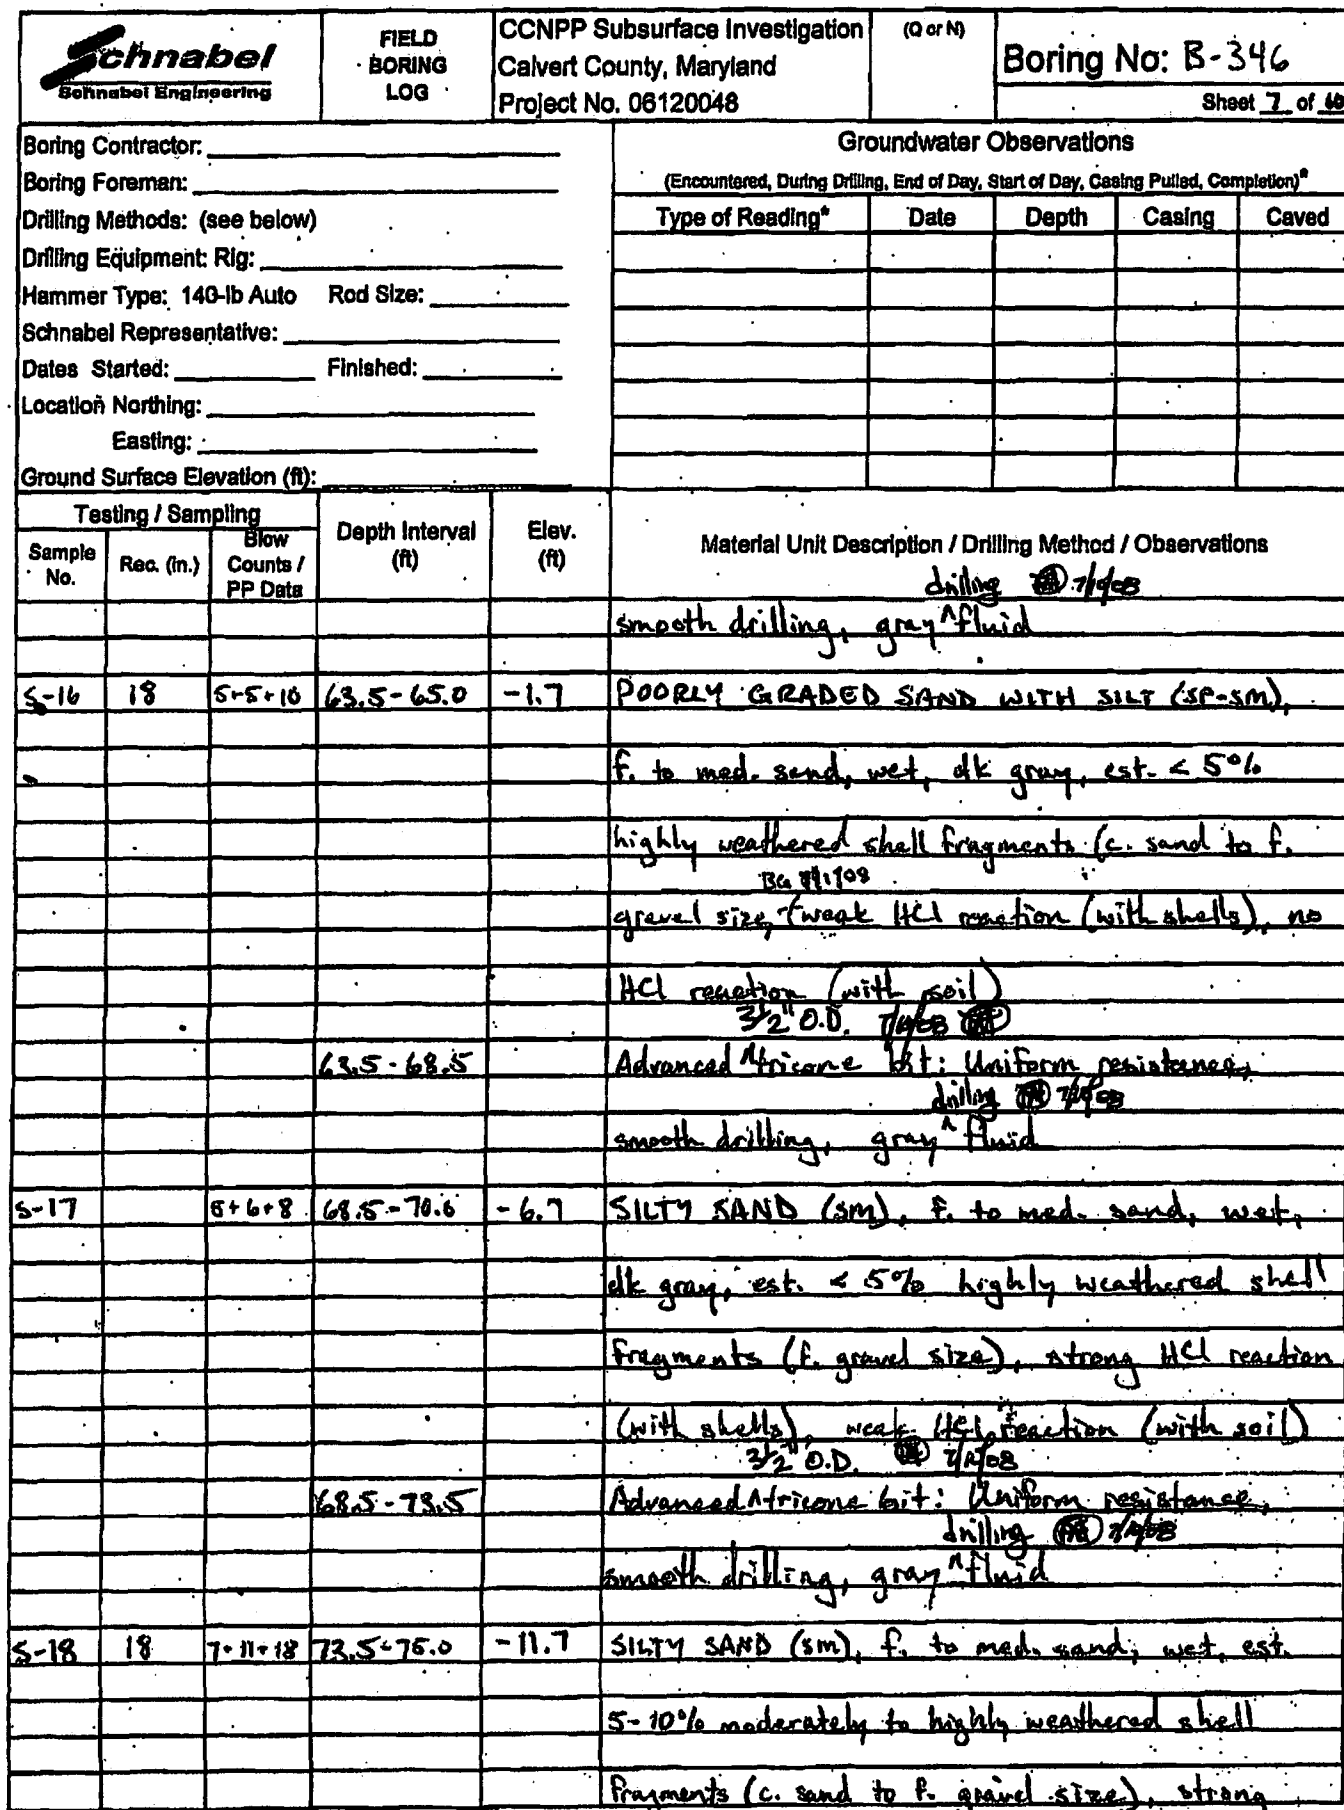 Schnabel
Schnabel Engineering
FIELD
BORING
LOG
CCNPP Subsurface Investigation
Calvert County, Maryland
Project No. 06120048
(Q or N)
Boring No: B-346
Sheet 7 of 10
Boring Contractor:
Boring Foreman:
Drilling Methods: (see below)
Drilling Equipment: Rig:
Hammer Type: 140-lb Auto Rod Size:
Schnabel Representative:
Dates Started: Finished:
Location Northing:
Easting:
Ground Surface Elevation (ft):
Groundwater Observations
(Encountered, During Drilling, End of Day, Start of Day, Casing Pulled, Completion)*
Type of Reading* Date Depth Casing Caved
Testing / Sampling
Sample No. Rec. (in.) Blow Counts / PP Data Depth Interval (ft) Elev. (ft) Material Unit Description / Drilling Method / Observations
drilling
smooth drilling, gray ^ fluid
S-16 18 5+5+10 63.5-65.0 -1.7 POORLY GRADED SAND WITH SILT (SP-SM),
f. to med. sand, wet, dk gray, est. < 5%
highly weathered shell fragments (c. sand to f.
BG
gravel size, weak HCl reaction (with shells), no
HCl reaction (with soil)
3½" O.D.
63.5-68.5 Advanced ^ tricone bit: Uniform resistance,
drilling
smooth drilling, gray ^ fluid
S-17 5+6+8 68.5-70.0 -6.7 SILTY SAND (SM), f. to med. sand, wet,
dk gray, est. < 5% highly weathered shell
fragments (f. gravel size), strong HCl reaction
(with shells), weak HCl reaction (with soil)
3½" O.D.
68.5-73.5 Advanced ^ tricone bit: Uniform resistance,
drilling
smooth drilling, gray ^ fluid
S-18 18 7+11+18 73.5-75.0 -11.7 SILTY SAND (SM), f. to med. sand, wet, est.
5-10% moderately to highly weathered shell
fragments (c. sand to f. gravel size), strong